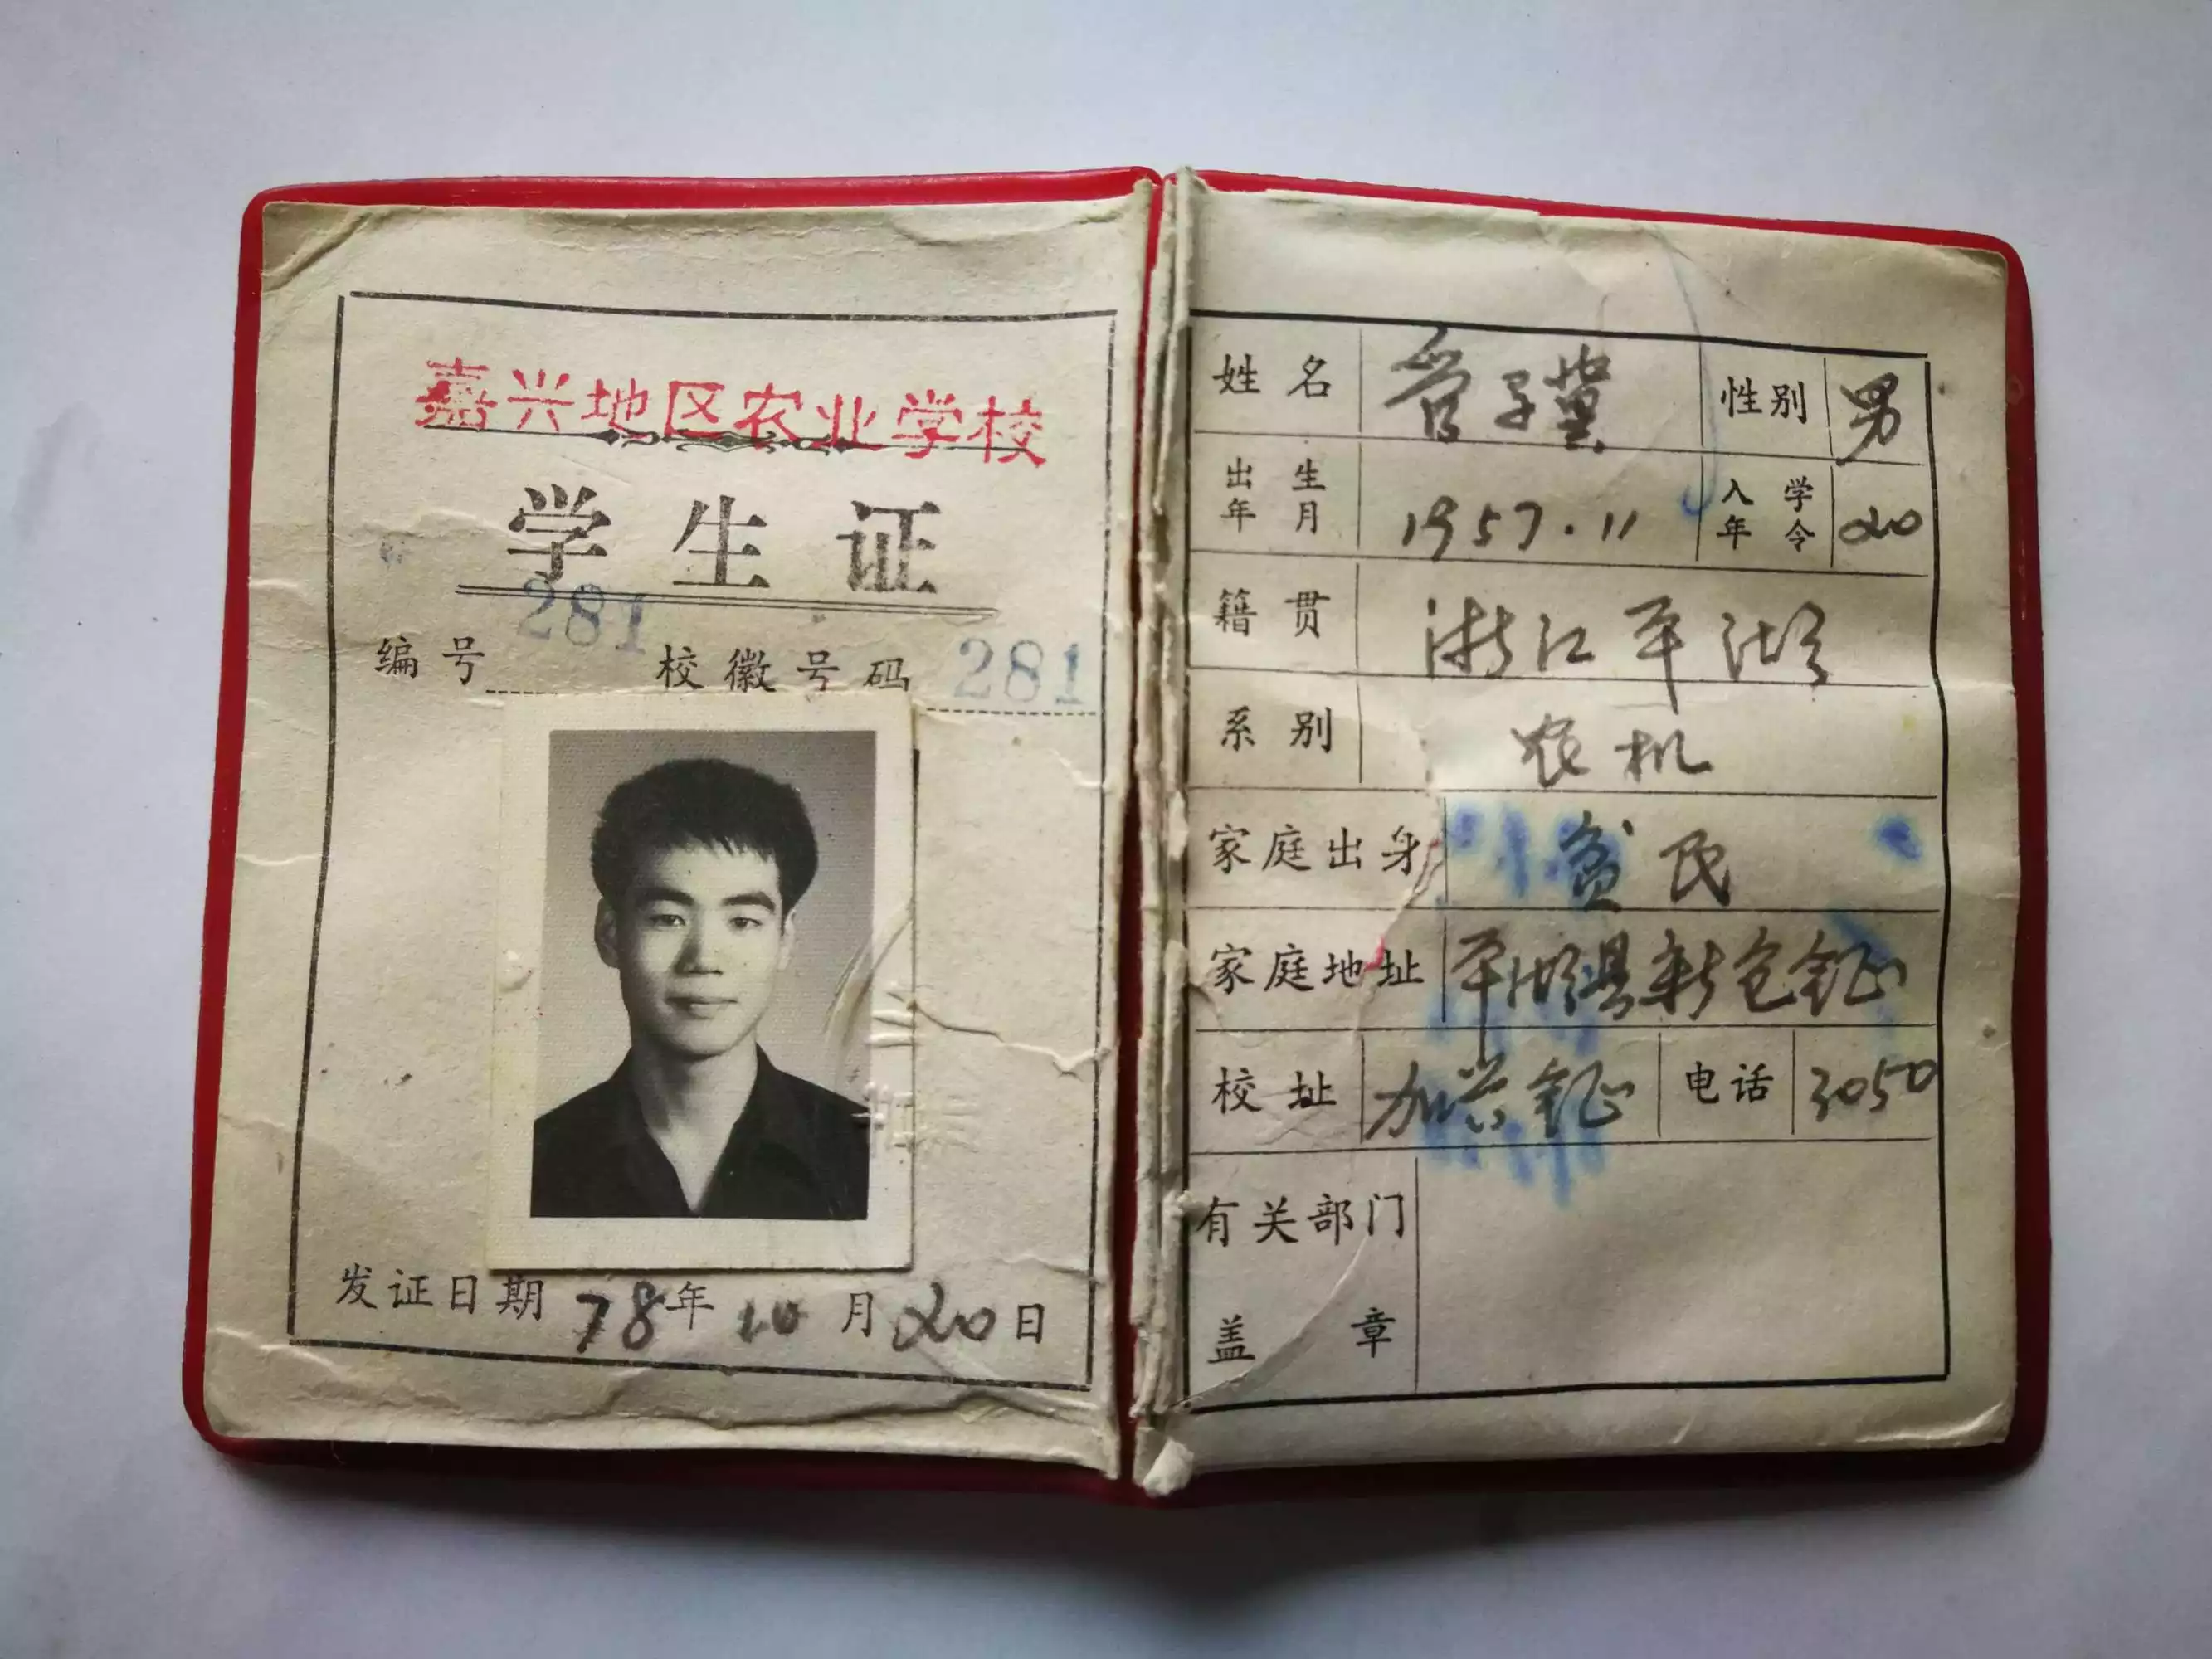 嘉兴地区农业学校
学生证
编号 281 校徽号码 281
发证日期 78年 10月 20日
姓名 管子冀 性别 男
出生年月 1957.11 入学年令 20
籍贯 浙江平湖
系别 农机
家庭出身 贫民
家庭地址 平湖县新仓镇
校址 加兴镇 电话 3050
有关部门
盖章